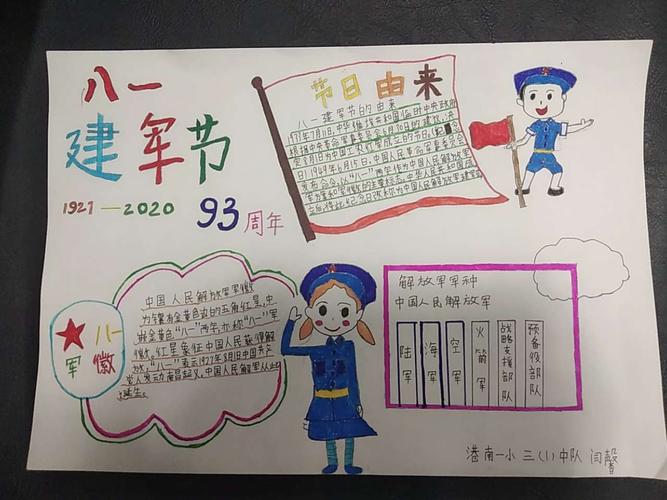 八一
建军节
1927—2020 93周年
节日由来
八一建军节的由来
1933年7月11日,中华维埃共和国临时中央政府
根据中央革命军事委员会6月30日的建议,决
定8月1日为中国工农红军成立的节日。
日1949年6月15日,中国人民革命军事委员会
发布命令,以"八一"两字作为中国人民解放
军军旗和军徽的主要标志。中华人民共和国成
立后,将此纪念日改称为中国人民解放军建军节
八一
军徽
中国人民解放军军徽
为镶有金黄色边的五角红星,中
嵌金黄色"八一"两字,亦称"八一"军
徽。红星象征中国人民获得解
放,"八一"表示1927年8月1日中国共产
党人发动南昌起义,中国人民解放军从此
诞生。
解放军军种
中国人民解放军
陆军
海军
空军
火箭军
战略支援部队
预备役部队
港南一小 三(1)中队 闫馨